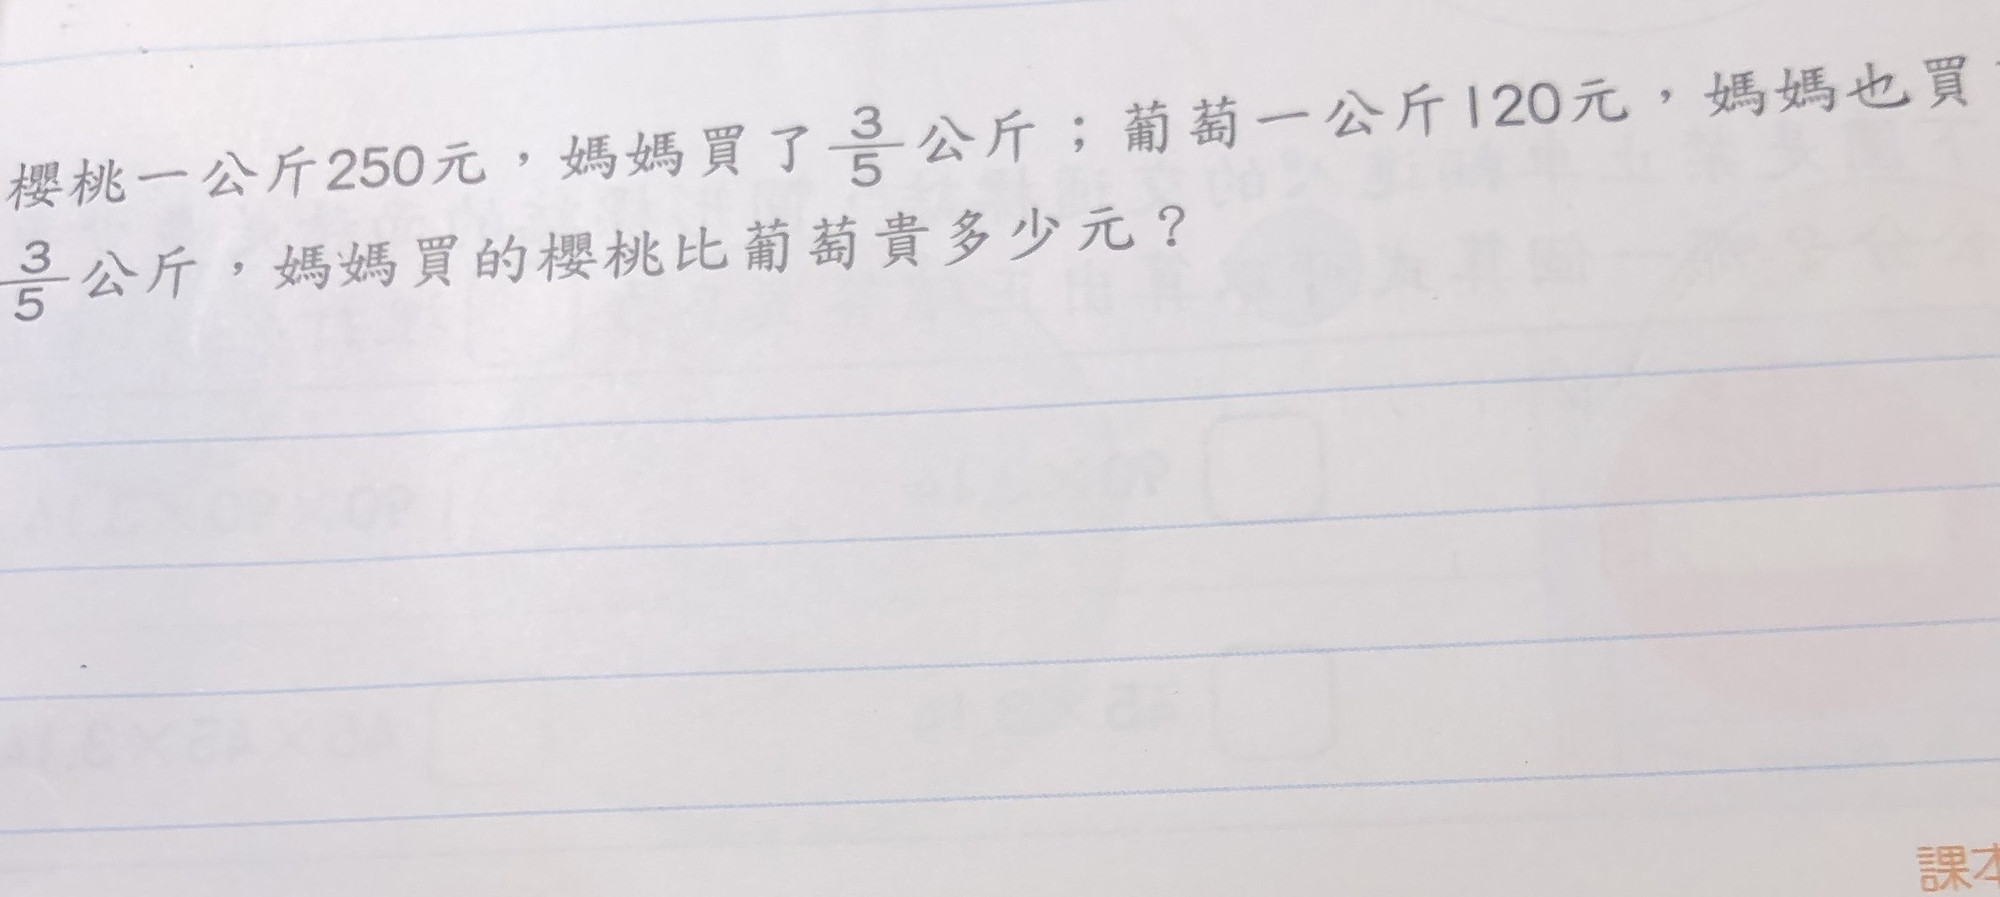 櫻桃一公斤250元，媽媽買了3/5公斤；葡萄一公斤120元，媽媽也買
3/5公斤，媽媽買的櫻桃比葡萄貴多少元？
課本